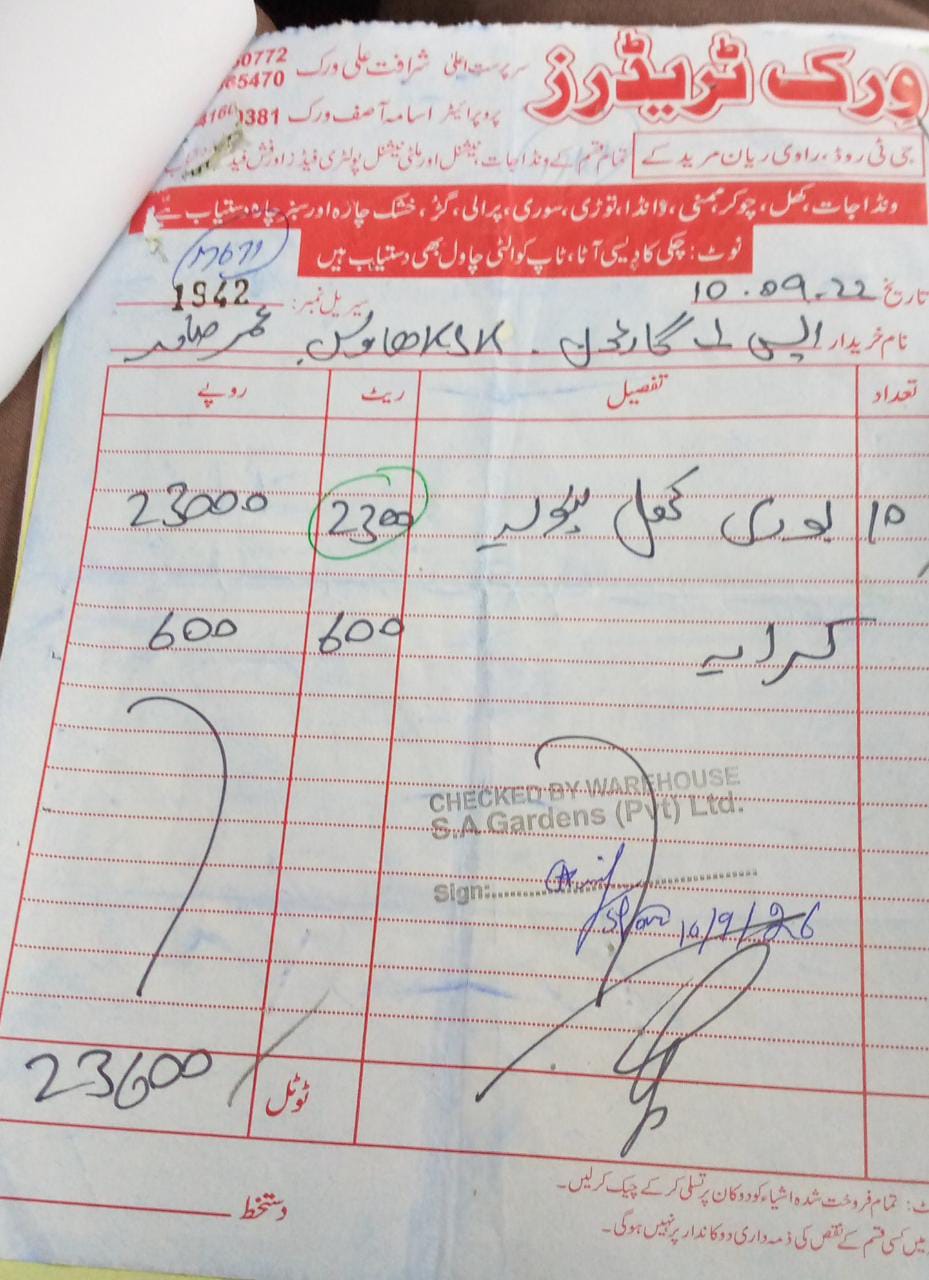 ورک ٹریڈرز
سرپرست اعلیٰ شرافت علی ورک
0772
65470
پروپرائیٹر اسامہ آصف ورک 0381
جی ٹی روڈ، راوی ریان مرید کے
تمام قسم کے ونڈا جات، نیشنل اور ملٹی نیشنل پولٹری فیڈز اور فش فیڈ
ونڈا جات، کھل، چوکر، مکئی، دانڈا، توڑی، سوری، پرالی، گڑ، خشک چارہ اور سبز چارہ دستیاب ہے
نوٹ: چکی کا دیسی آٹا، ٹاپ کوالٹی چاول بھی دستیاب ہیں
تاریخ 10.09.22 سیریل نمبر: 1942
نام خریدار ایس اے گارڈن۔ KSK ھاوس عمر صاحب
تعداد تفصیل ریٹ روپے
10 بوری کھل بنولہ 2300 23000
کرایہ 600 600
CHECKED BY WAREHOUSE
S.A Gardens (Pvt) Ltd.
Sign:
ٹوٹل 23600
تمام فروخت شدہ اشیاء کو دوکان پر تسلی کر کے چیک کر لیں۔
میں کسی قسم کے نقص کی ذمہ داری دوکاندار پر نہیں ہوگی۔
دستخط